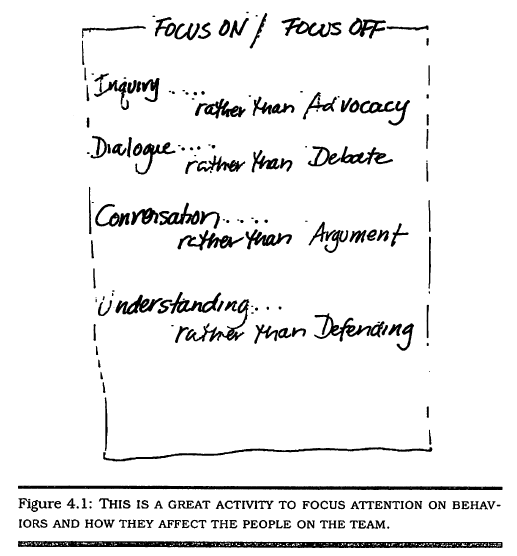 FOCUS ON / FOCUS OFF
Inquiry ....
rather than Advocacy
Dialogue ....
rather than Debate
Conversation ....
rather than Argument
Understanding ...
rather than Defending
Figure 4.1: THIS IS A GREAT ACTIVITY TO FOCUS ATTENTION ON BEHAV-
IORS AND HOW THEY AFFECT THE PEOPLE ON THE TEAM.